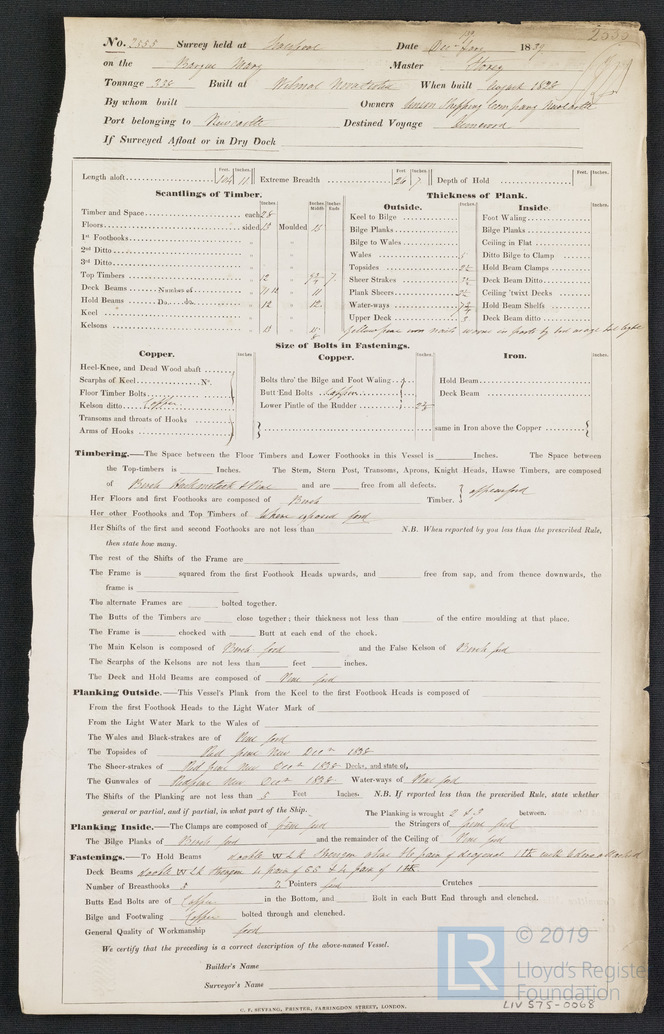 No. 2555 Survey held at Liverpool Date Decr Jany 1839
2555
on the Barque Mary Master
Tonnage 336 Built at Wilmot Nova Scotia When built August 1828
By whom built Owners Union Shipping Company Newcastle
Port belonging to Newcastle Destined Voyage Demerara
If Surveyed Afloat or in Dry Dock
Length aloft 104 11 Extreme Breadth 26 7 Depth of Hold
Feet. Inches. Feet. Inches. Feet. Inches.
Scantlings of Timber.
Timber and Space each 28
Floors sided 13 Moulded 13
1st Foothooks
2nd Ditto
3rd Ditto
Top Timbers 12
Deck Beams Number of 11 12 11
Hold Beams Do. do. 12 12
Keel
Kelsons 13
Thickness of Plank.
Outside. Inside.
Keel to Bilge Foot Waling
Bilge Planks Bilge Planks
Bilge to Wales Ceiling in Flat
Wales Ditto Bilge to Clamp
Topsides Hold Beam Clamps
Sheer Strakes Deck Beam Ditto
Plank Sheers Ceiling 'twixt Decks
Water-ways Hold Beam Shelfs
Upper Deck 3 Deck Beam ditto
Yellow pine iron nails worn in parts by but
Size of Bolts in Fastenings.
Copper. Copper. Iron.
Heel-Knee, and Dead Wood abaft
Scarphs of Keel No.
Floor Timber Bolts
Kelson ditto Copper
Transoms and throats of Hooks
Arms of Hooks
Bolts thro' the Bilge and Foot Waling
Butt End Bolts Copper
Lower Pintle of the Rudder
Hold Beam
Deck Beam
same in Iron above the Copper
Timbering.—The Space between the Floor Timbers and Lower Foothooks in this Vessel is Inches. The Space between
the Top-timbers is Inches. The Stem, Stern Post, Transoms, Aprons, Knight Heads, Hawse Timbers, are composed
of Birch Hackmatack & Pine and are free from all defects.
Her Floors and first Foothooks are composed of Birch Timber. } appear good
Her other Foothooks and Top Timbers of Where exposed good
Her Shifts of the first and second Foothooks are not less than N.B. When reported by you less than the prescribed Rule,
then state how many.
The rest of the Shifts of the Frame are
The Frame is squared from the first Foothook Heads upwards, and free from sap, and from thence downwards, the
frame is
The alternate Frames are bolted together.
The Butts of the Timbers are close together; their thickness not less than of the entire moulding at that place.
The Frame is chocked with Butt at each end of the chock.
The Main Kelson is composed of Birch good and the False Kelson of Birch good
The Scarphs of the Kelsons are not less than feet inches.
The Deck and Hold Beams are composed of Pine good
Planking Outside.—This Vessel's Plank from the Keel to the first Foothook Heads is composed of
From the first Foothook Heads to the Light Water Mark of
From the Light Water Mark to the Wales of
The Wales and Black-strakes are of Pine good
The Topsides of Red pine New Decr 1838
The Sheer-strakes of Red pine New Decr 1838 Decks, and state of,
The Gunwales of Red pine New Decr 1838 Water-ways of Pine good
The Shifts of the Planking are not less than 5 Feet Inches. N.B. If reported less than the prescribed Rule, state whether
general or partial, and if partial, in what part of the Ship. The Planking is wrought 2 & 3 between.
Planking Inside.—The Clamps are composed of pine good the Stringers of pine good
The Bilge Planks of Birch good and the remainder of the Ceiling of Pine good
Fastenings.—To Hold Beams double W L K
Deck Beams double W L K
Number of Breasthooks 5 Pointers Crutches
Butts End Bolts are of Copper in the Bottom, and Bolt in each Butt End through and clenched.
Bilge and Footwaling Copper bolted through and clenched.
General Quality of Workmanship good
We certify that the preceding is a correct description of the above-named Vessel.
Builder's Name
Surveyor's Name
C. F. SEYFANG, PRINTER, FARRINGDON STREET, LONDON.
LR © 2019
Lloyd's Register
Foundation
LIV 575-0068